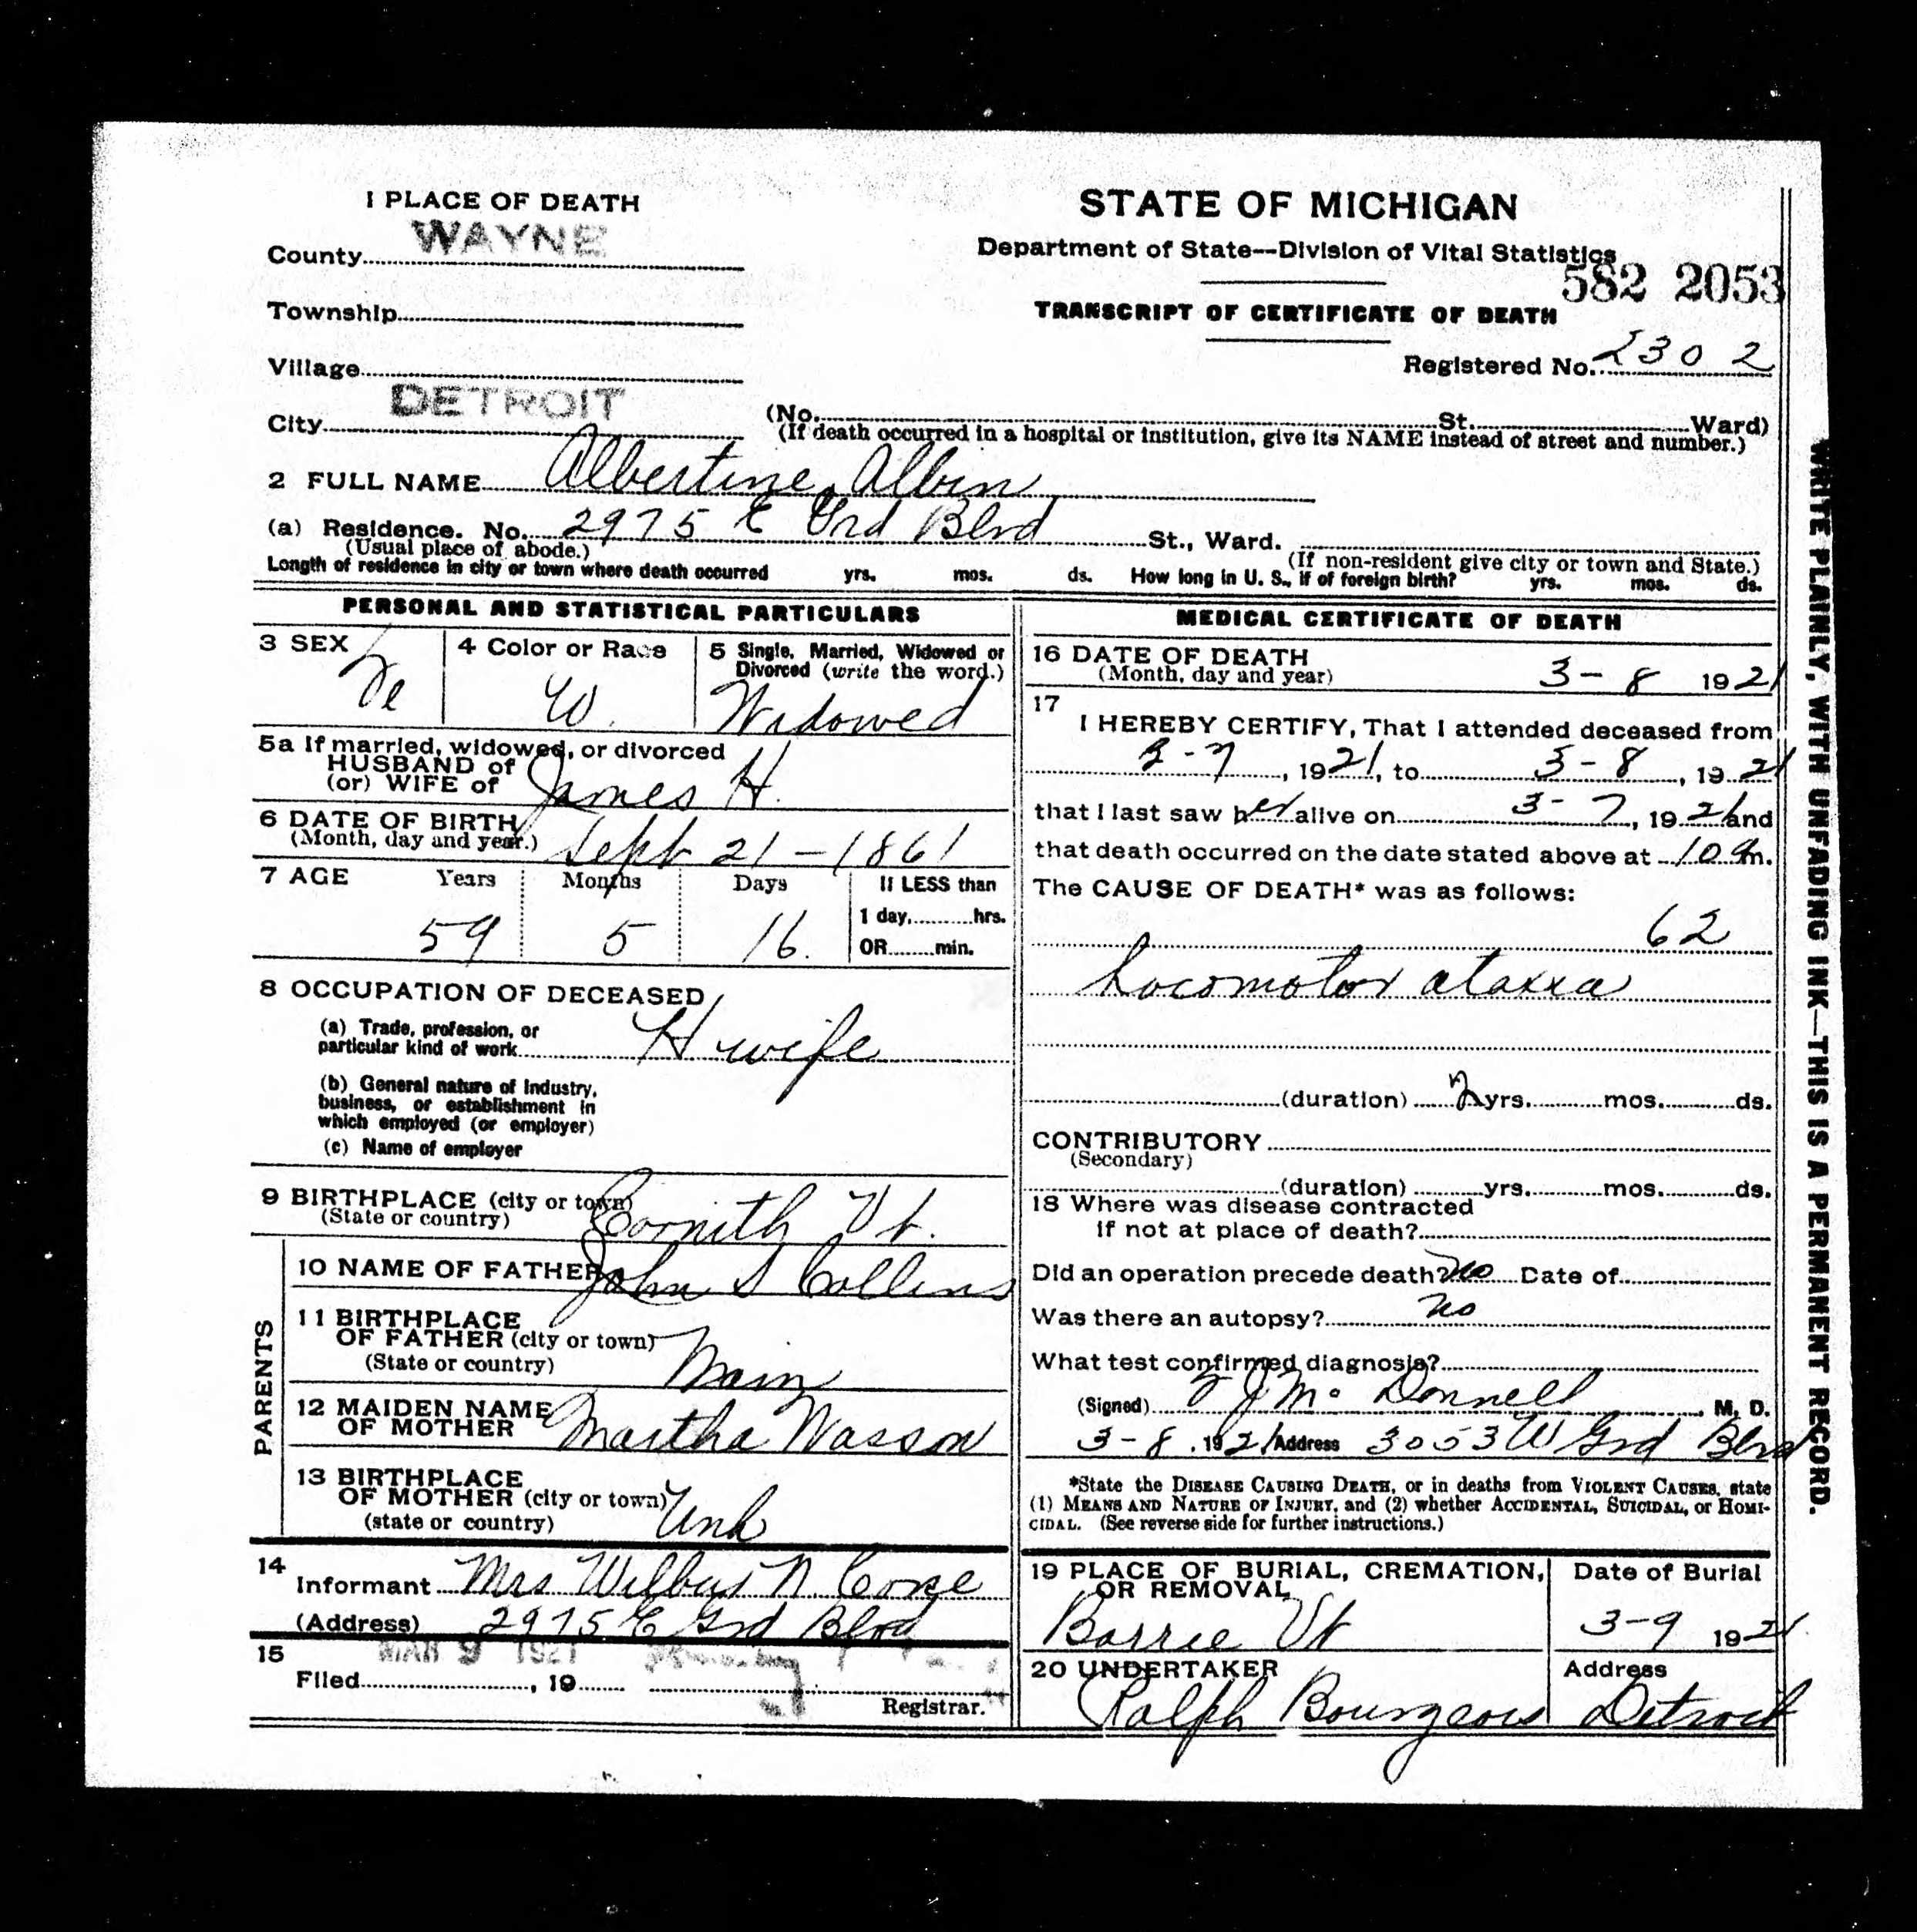 1 PLACE OF DEATH
County WAYNE
Township
Village
City DETROIT
STATE OF MICHIGAN
Department of State--Division of Vital Statistics
582 2053
TRANSCRIPT OF CERTIFICATE OF DEATH
Registered No. 2302
(No. St. Ward)
(If death occurred in a hospital or institution, give its NAME instead of street and number.)
2 FULL NAME Albertine Albin
(a) Residence. No. 2975 E Grd Blvd St., Ward.
(Usual place of abode.) (If non-resident give city or town and State.)
Length of residence in city or town where death occurred yrs. mos. ds. How long in U. S., if of foreign birth? yrs. mos. ds.
PERSONAL AND STATISTICAL PARTICULARS
3 SEX Fe
4 Color or Race W.
5 Single, Married, Widowed or
Divorced (write the word.)
Widowed
5a If married, widowed, or divorced
HUSBAND of
(or) WIFE of James H.
6 DATE OF BIRTH
(Month, day and year.) Sept 21-1861
7 AGE Years Months Days If LESS than
1 day, hrs.
59 5 16. OR min.
8 OCCUPATION OF DECEASED
(a) Trade, profession, or
particular kind of work H wife
(b) General nature of Industry,
business, or establishment in
which employed (or employer)
(c) Name of employer
9 BIRTHPLACE (city or town)
(State or country) Cornith Vt.
PARENTS
10 NAME OF FATHER John S Collins
11 BIRTHPLACE
OF FATHER (city or town)
(State or country) Main
12 MAIDEN NAME
OF MOTHER Martha Wasson
13 BIRTHPLACE
OF MOTHER (city or town)
(state or country) Unk
14
Informant Mrs Wilbur N.
(Address) 2975 E Grd Blvd
15 MAR 9 1921
Filed , 19
Registrar.
MEDICAL CERTIFICATE OF DEATH
16 DATE OF DEATH
(Month, day and year) 3-8 1921
17
I HEREBY CERTIFY, That I attended deceased from
3-7, 1921, to 3-8, 1921
that I last saw her alive on 3-7, 1921 and
that death occurred on the date stated above at 10 am.
The CAUSE OF DEATH* was as follows:
62
Locomotor ataxia
(duration) 2 yrs. mos. ds.
CONTRIBUTORY
(Secondary)
(duration) yrs. mos. ds.
18 Where was disease contracted
if not at place of death?
Did an operation precede death? no Date of
Was there an autopsy? no
What test confirmed diagnosis?
(Signed) J Mc Donnell, M. D.
3-8, 1921 Address 3053 W Grd Blvd
*State the DISEASE CAUSING DEATH, or in deaths from VIOLENT CAUSES, state
(1) MEANS AND NATURE OF INJURY, and (2) whether ACCIDENTAL, SUICIDAL, or HOMI-
CIDAL. (See reverse side for further instructions.)
19 PLACE OF BURIAL, CREMATION,
OR REMOVAL
Barrie Vt
Date of Burial
3-9 1921
20 UNDERTAKER
Ralph Bourgeois
Address
Detroit
WRITE PLAINLY, WITH UNFADING INK—THIS IS A PERMANENT RECORD.